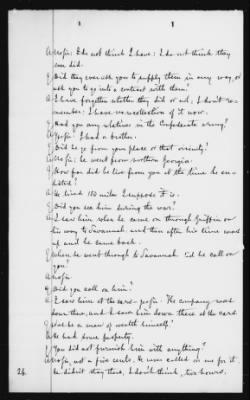 1 1
A No sir: I do not think I have: I do not think they
ever did.
Q Did they ever ask you to supply them in any way, or
ask you to go into a contract with them?
A I have forgotten whether they did or not; I don't re-
member; I have no recollection of it now.
Q Had you any relatives in the Confederate army?
A Yes sir I had a brother.
Q Did he go from your place or that vicinity?
A No sir: he went from northern Georgia.
Q How far did he live from you at the time he en-
listed?
A He lived 150 miles I suppose it is.
Q Did you see him during the war?
A I saw him when he came on through Griffin on
his way to Savannah and then after his time was
up and he came back.
Q When he went through to Savannah did he call on
you?
A No sir.
Q Did you call on him?
A I saw him at the cars - yes sir. The company was
down there and I saw him down there at the cars.
Q Was he a man of wealth himself?
A He had some property.
Q You did not furnish him with anything?
A No sir, not a five cents. He never called on me for it
He didn't stay there, I don't think, two hours.
26.